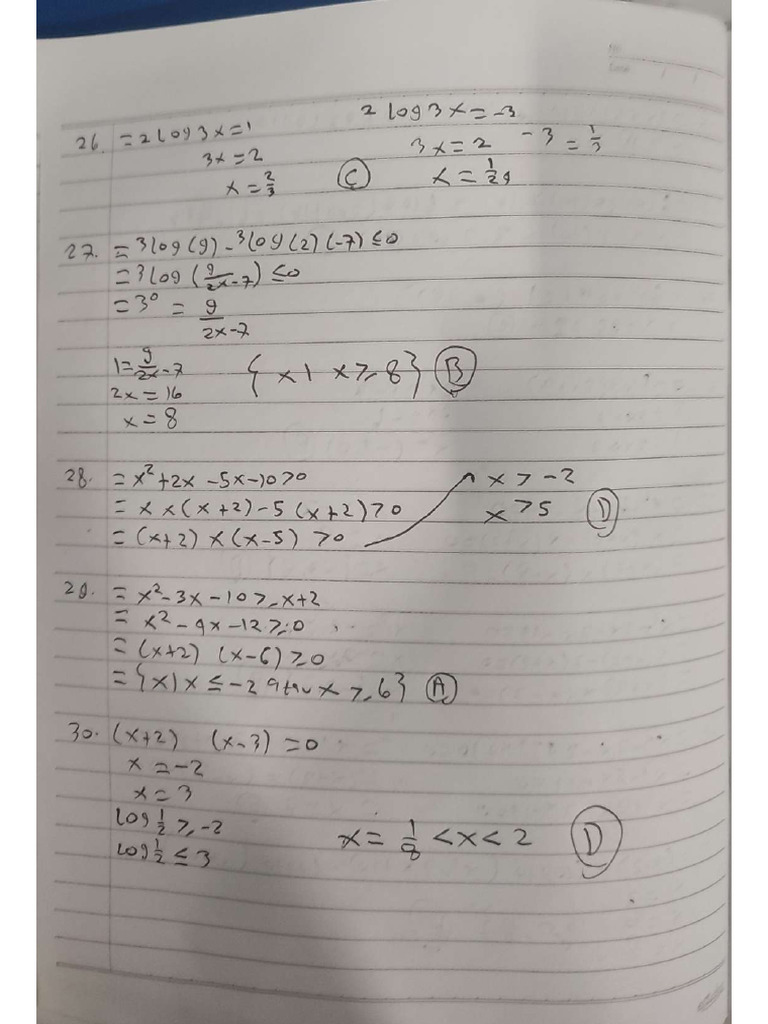 26. = 2 log 3x = 1
3x = 2
x = 2/3
C
2 log 3x = -3
3x = 2 -3 = 1/3
x = 1/29
27. = 3log (9) - 3log (2) (-7) ≤ 0
= 3log (9/2x-7) ≤ 0
= 3⁰ = 9/2x-7
1 = 9/2x-7
2x = 16
x = 8
{x | x ≥ 8} B
28. = x² + 2x - 5x - 10 > 0
= x × (x+2) - 5 (x+2) > 0
= (x+2) × (x-5) > 0
x > -2
x > 5 D
29. = x² - 3x - 10 ≥ x+2
= x² - 4x - 12 ≥ 0
= (x+2) (x-6) ≥ 0
= {x | x ≤ -2 atau x ≥ 6} A
30. (x+2) (x-3) = 0
x = -2
x = 3
log 1/2 ≥ -2
log 1/2 ≤ 3
x = 1/8 < x < 2 D